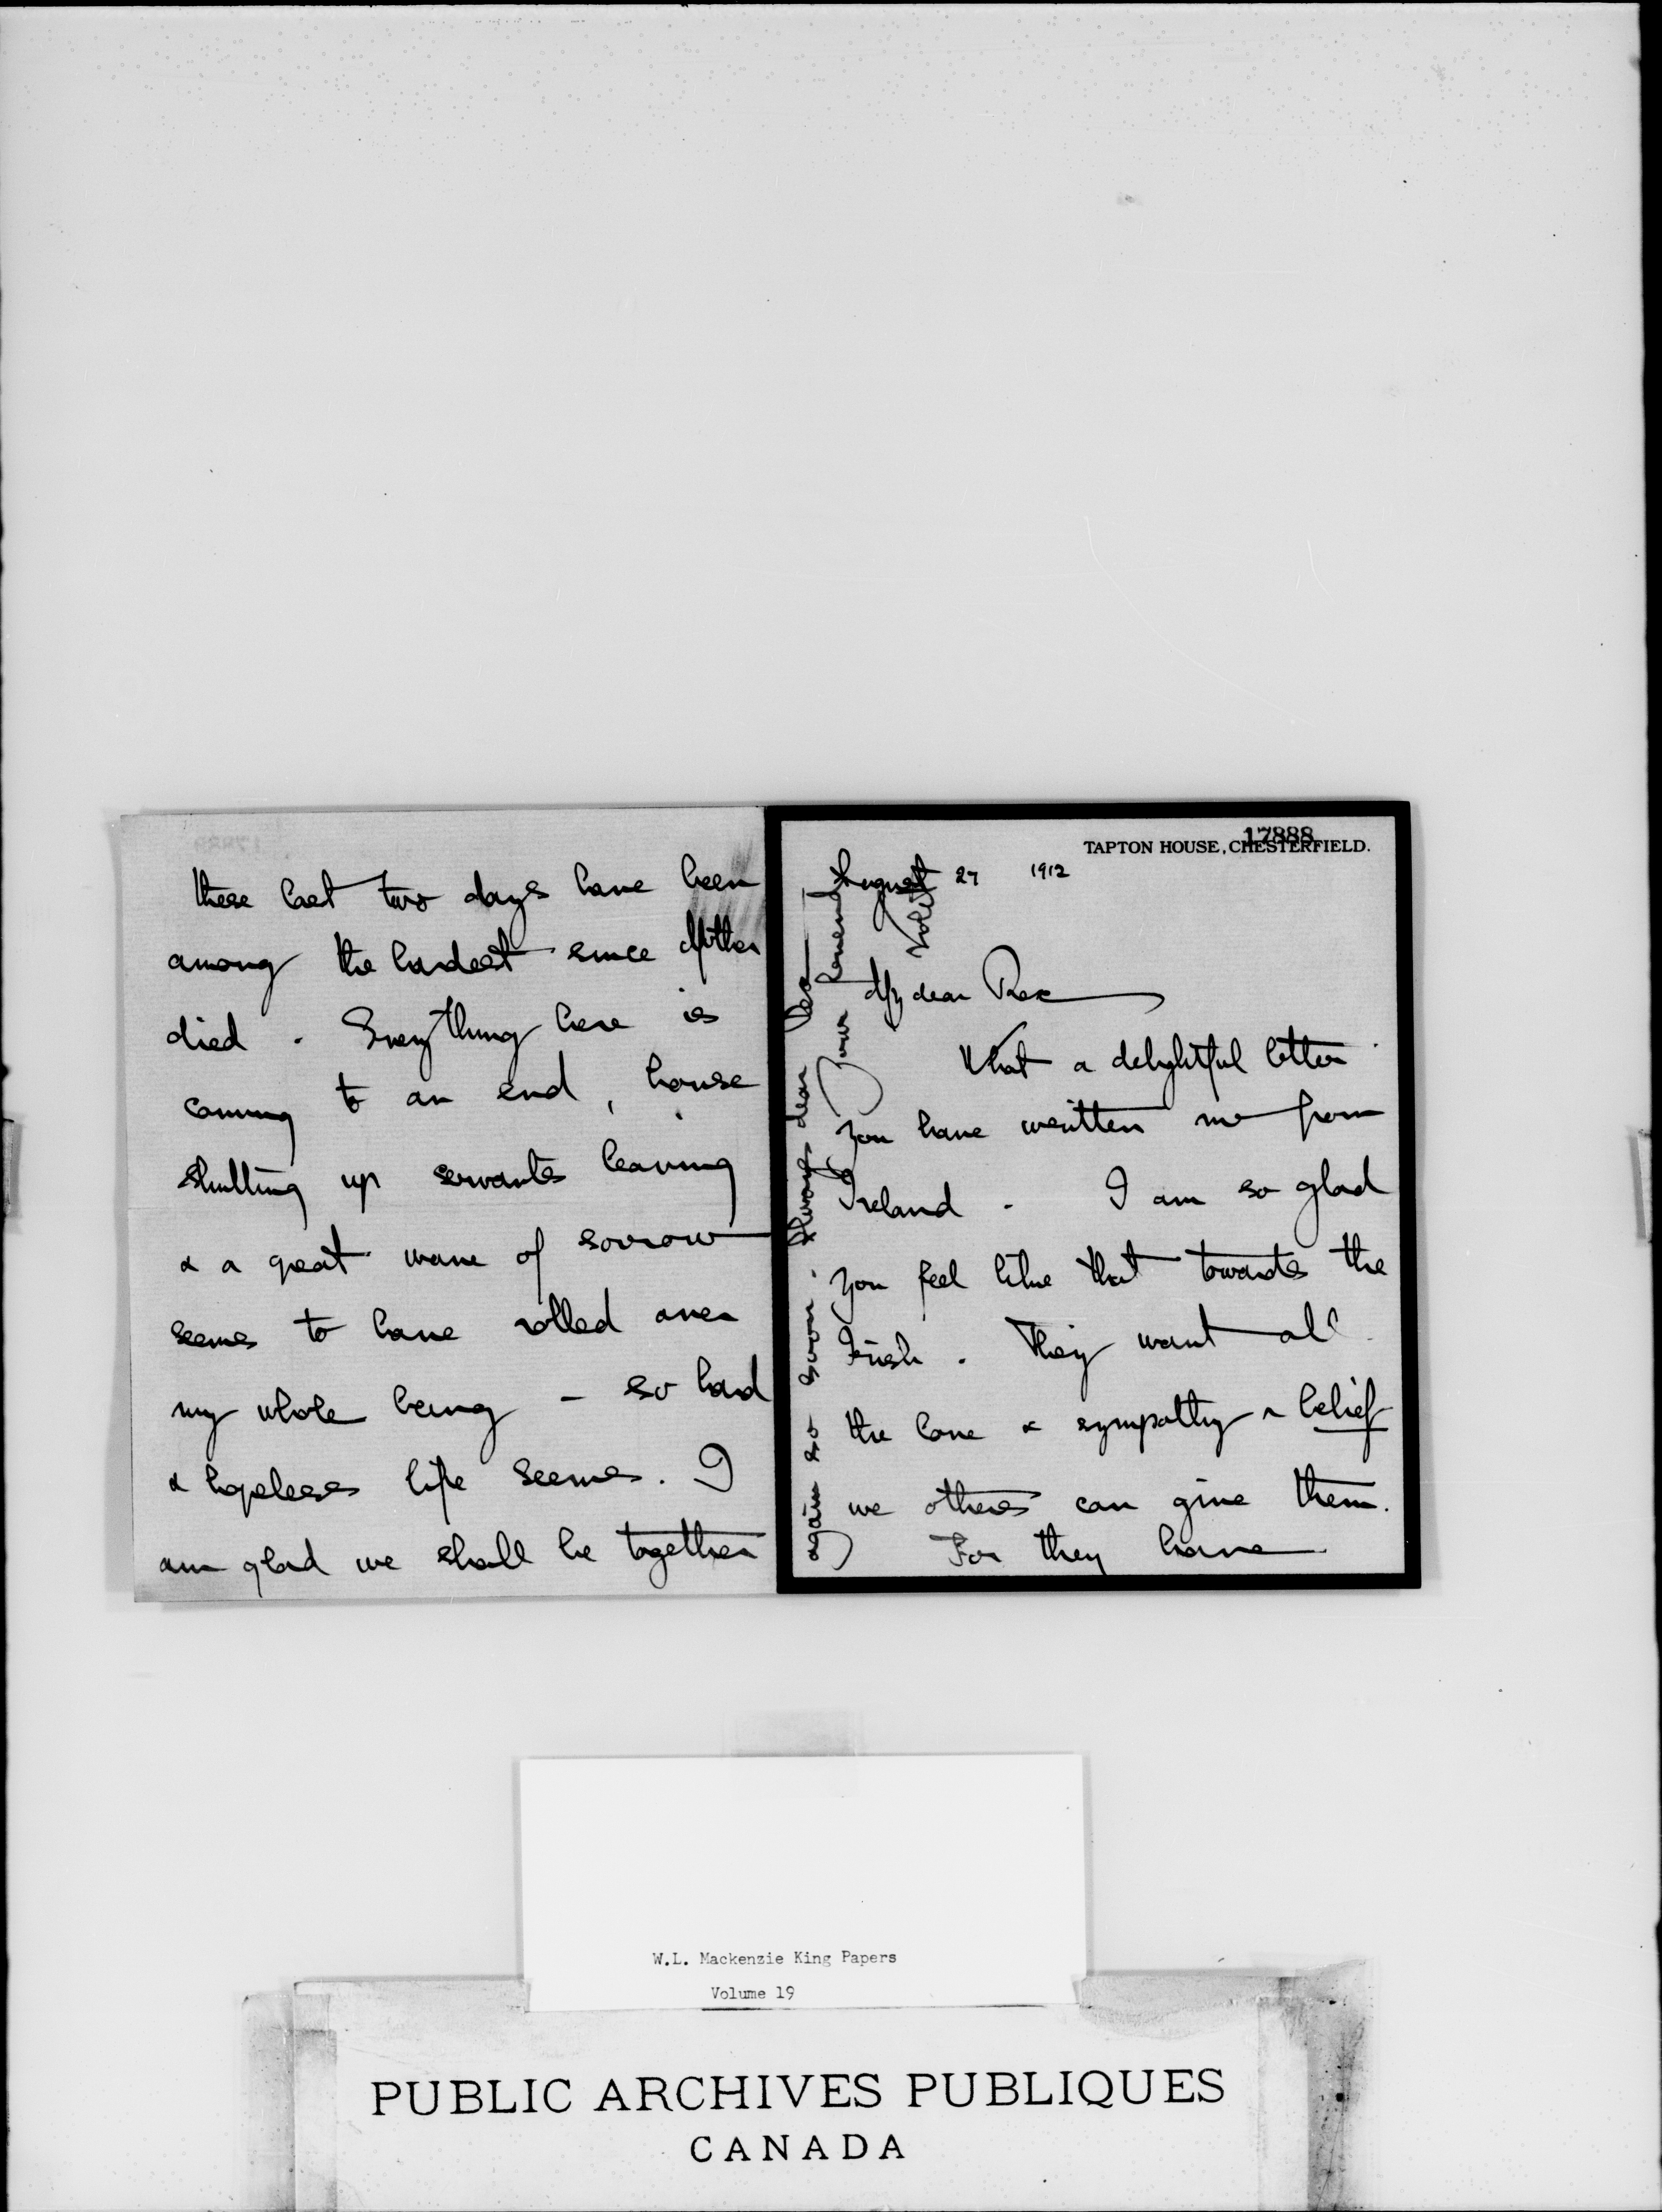 17888
TAPTON HOUSE, CHESTERFIELD.
August 27 1912
My dear Rex
What a delightful letter
you have written me from
Ireland. I am so glad
you feel like that towards the
Irish. They want all
the love & sympathy & belief
we others can give them.
For they have
these last two days have been
among the hardest since Mother
died. Everything here is
coming to an end, house
shutting up servants leaving
& a great wave of sorrow
seems to have rolled over
my whole being - so hard
& hopeless life seems. I
am glad we shall be together
again so soon. Always dear Rex
Your
Violet
W.L. Mackenzie King Papers
Volume 19
PUBLIC ARCHIVES PUBLIQUES
CANADA